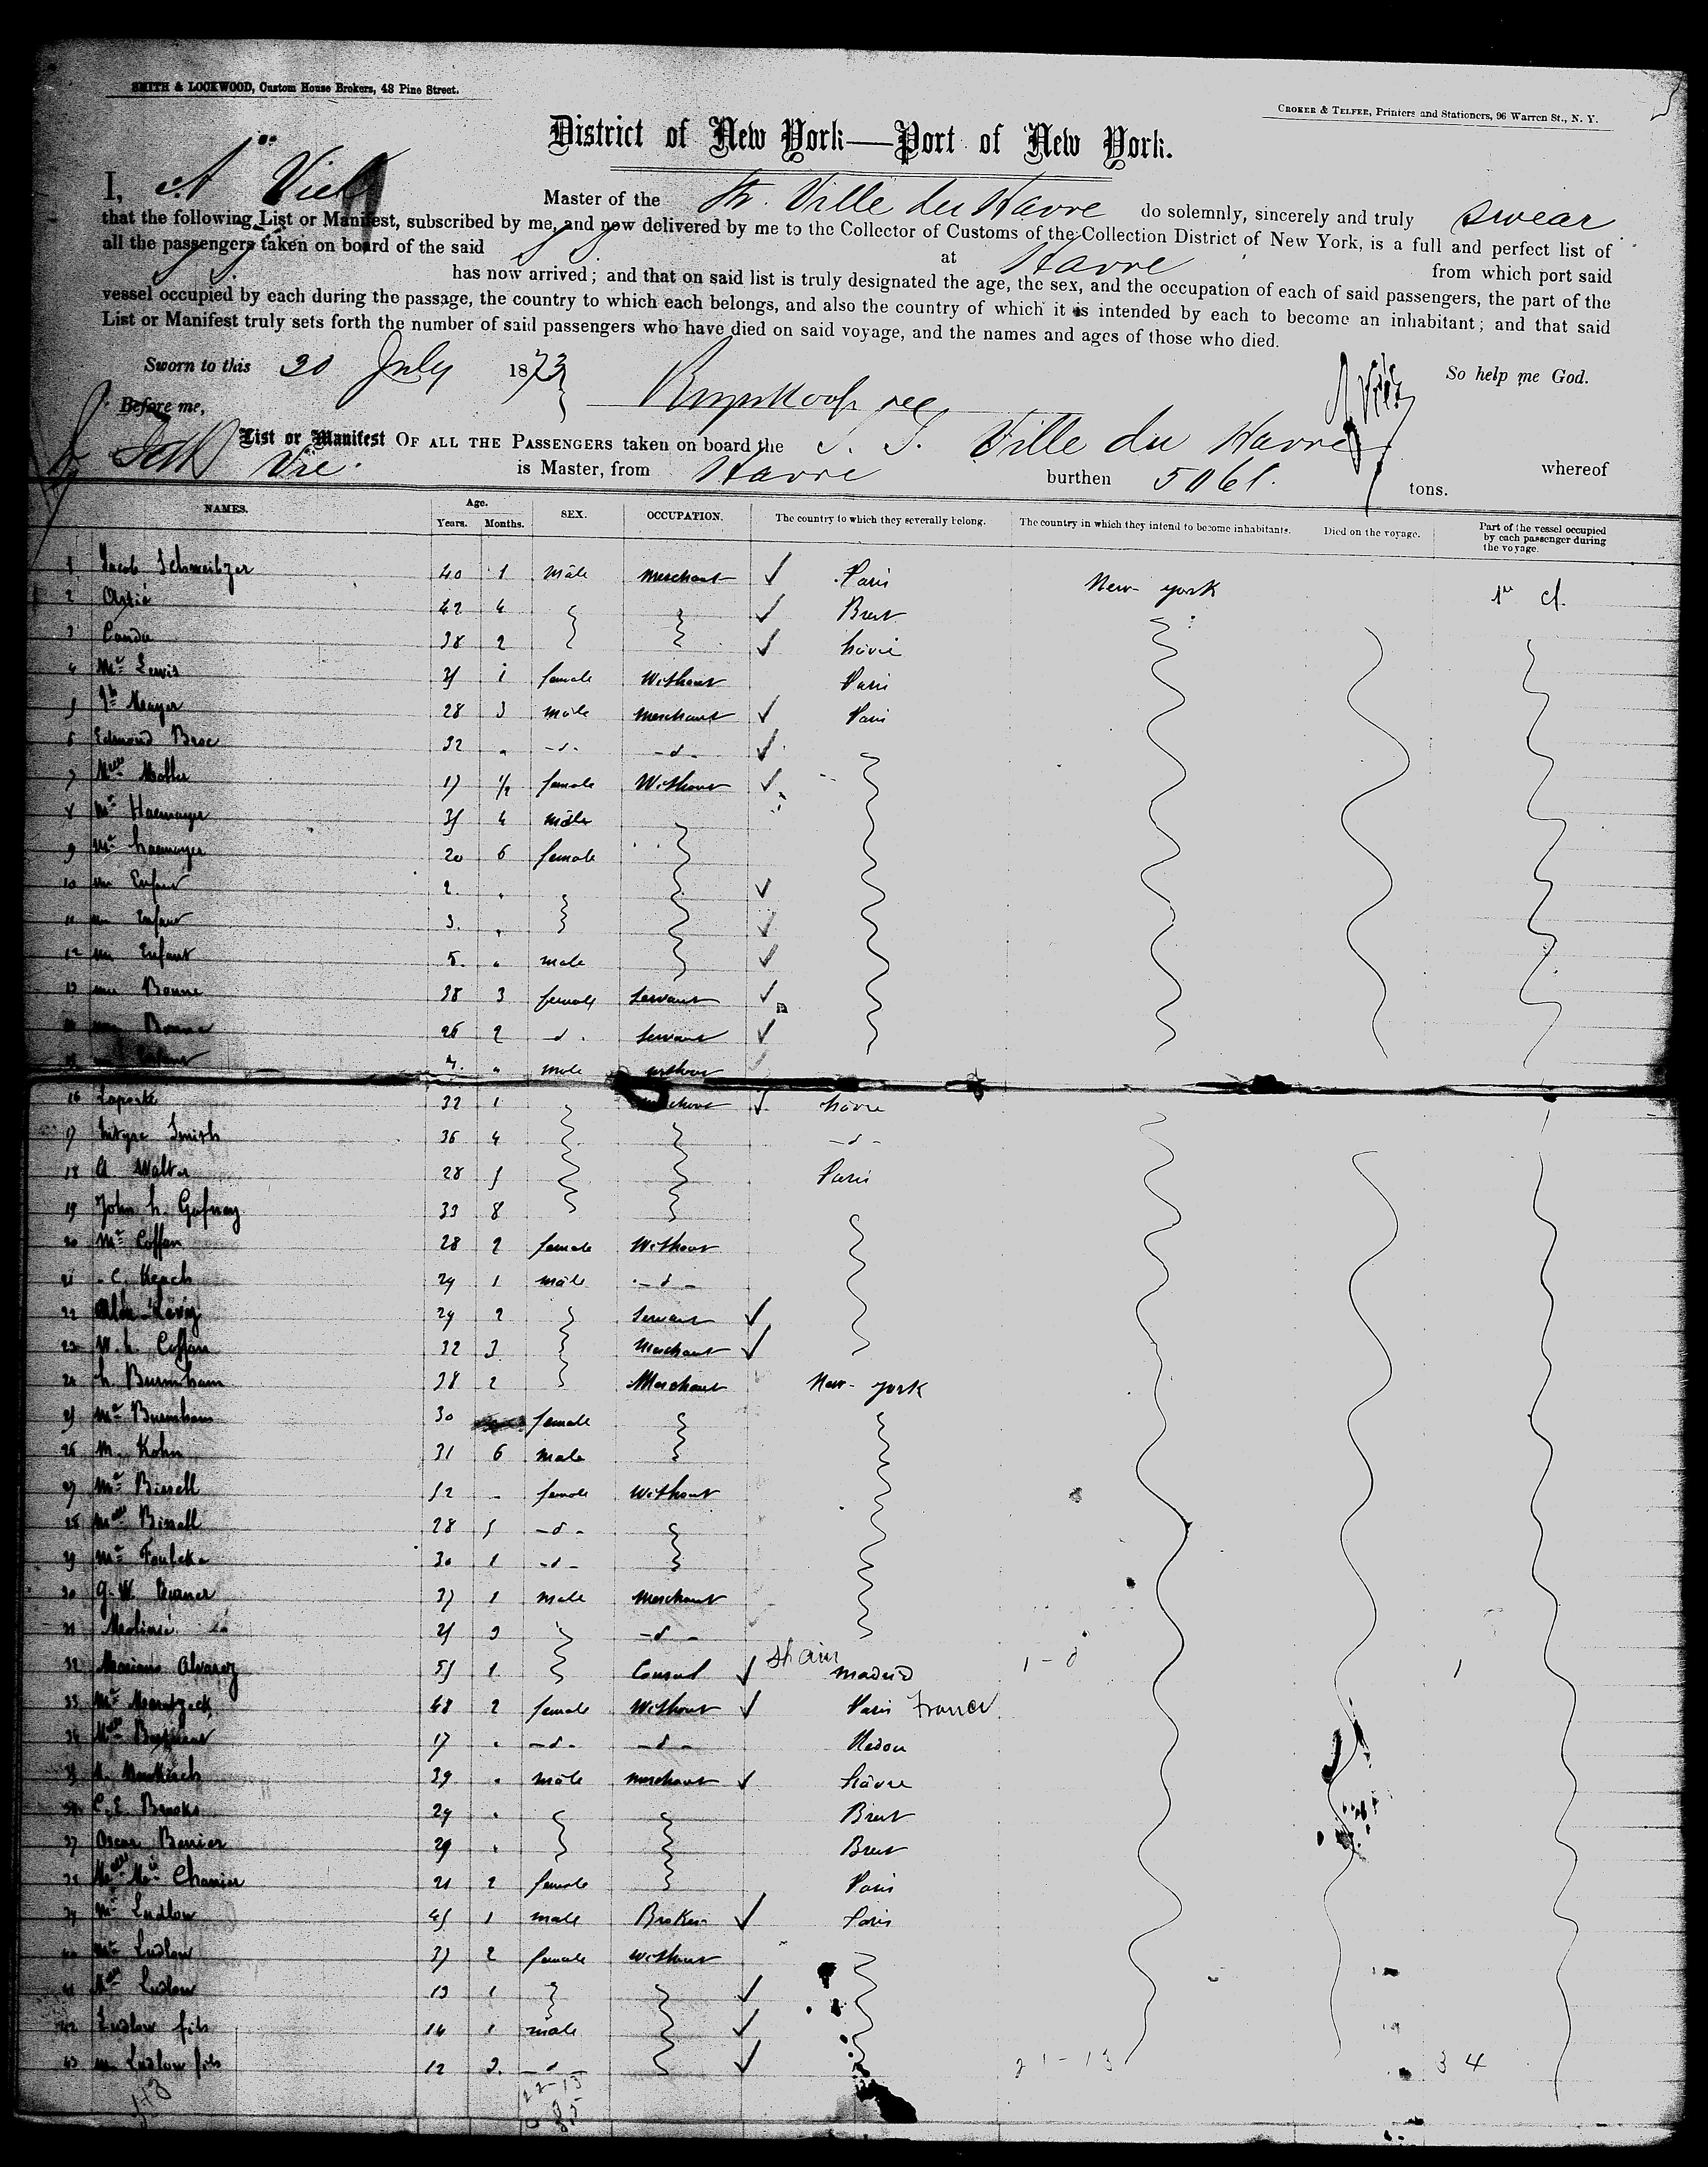 SMITH & LOCKWOOD, Custom House Brokers, 43 Pine Street.
CROKER & TELFER, Printers and Stationers, 96 Warren St., N. Y.
District of New York—Port of New York.
I, A Viel Master of the Str. Ville du Havre do solemnly, sincerely and truly swear
that the following List or Manifest, subscribed by me, and now delivered by me to the Collector of Customs of the Collection District of New York, is a full and perfect list of
all the passengers taken on board of the said at Havre from which port said
has now arrived; and that on said list is truly designated the age, the sex, and the occupation of each of said passengers, the part of the
vessel occupied by each during the passage, the country to which each belongs, and also the country of which it is intended by each to become an inhabitant; and that said
List or Manifest truly sets forth the number of said passengers who have died on said voyage, and the names and ages of those who died.
Sworn to this 30 July 1873 So help me God.
Before me,
List or Manifest OF ALL THE PASSENGERS taken on board the S. S. Ville du Havre whereof
is Master, from Havre burthen tons.
NAMES. Age. Years. Months. SEX. OCCUPATION. The country to which they severally belong. The country in which they intend to become inhabitants. Died on the voyage. Part of the vessel occupied by each passenger during the voyage.
1 Jacob Schweitzer 40 1 Mâle Merchant Paris New-york 1re cl.
2 42 4 Brest
3 Candu 38 2 hâvre
4 Me Lewis 1 female Without Paris
5 Meayer 28 3 mâle Merchant Paris
6 Edmond Broc 32 " -d- -d-
7 Melle Moller 17 1/2 female Without
8 Mr Haemayer 35 4 mâle
9 Me haemayer 20 6 female
10 un Enfant 2. "
11 un Enfant 3. "
12 un Enfant 5. " male
13 une Bonne 38 3 female Servant
14 une Bonne 26 2 -d- Servant
15 un Enfant 4. " male without
16 Laporte 32 1 Merchant hâvre
17 Smith 36 4 -d-
18 A. Walter 28 5 Paris
19 John h. 33 8
20 Me Coffin 28 2 female Without
21 C. Keach 29 1 mâle -d-
22 29 2 Servant
23 W. h. Coffin 32 3 Merchant
24 h. Burnham 38 2 Merchant New-york
25 Me Burnham 30 female
26 M. Kohn 31 6 male
27 Me Bissell 52 - female Without
28 Melle Bissell 28 5 -d-
29 Me 30 1 -d-
30 G. W. 37 1 male Merchant
31 Molinié 25 3 -d-
32 Mariano Alvarez 55 1 Consul Spain Madrid 1-0 1
33 Me 48 2 female Without Paris France
34 Melle 17 " -d- -d- Redon
35 39 " mâle merchant hâvre
36 C. E. Brooks 29 " Brest
37 Oscar Bernier 29 " Brest
38 Melle Me Charrier 21 2 female Paris
39 Mr Ludlow 45 1 male Broker Paris
40 Me Ludlow 37 2 female without
41 Melle Ludlow 13 1
42 Ludlow fils 14 1 male
43 un Ludlow fils 12 2. -d-
21-13 34